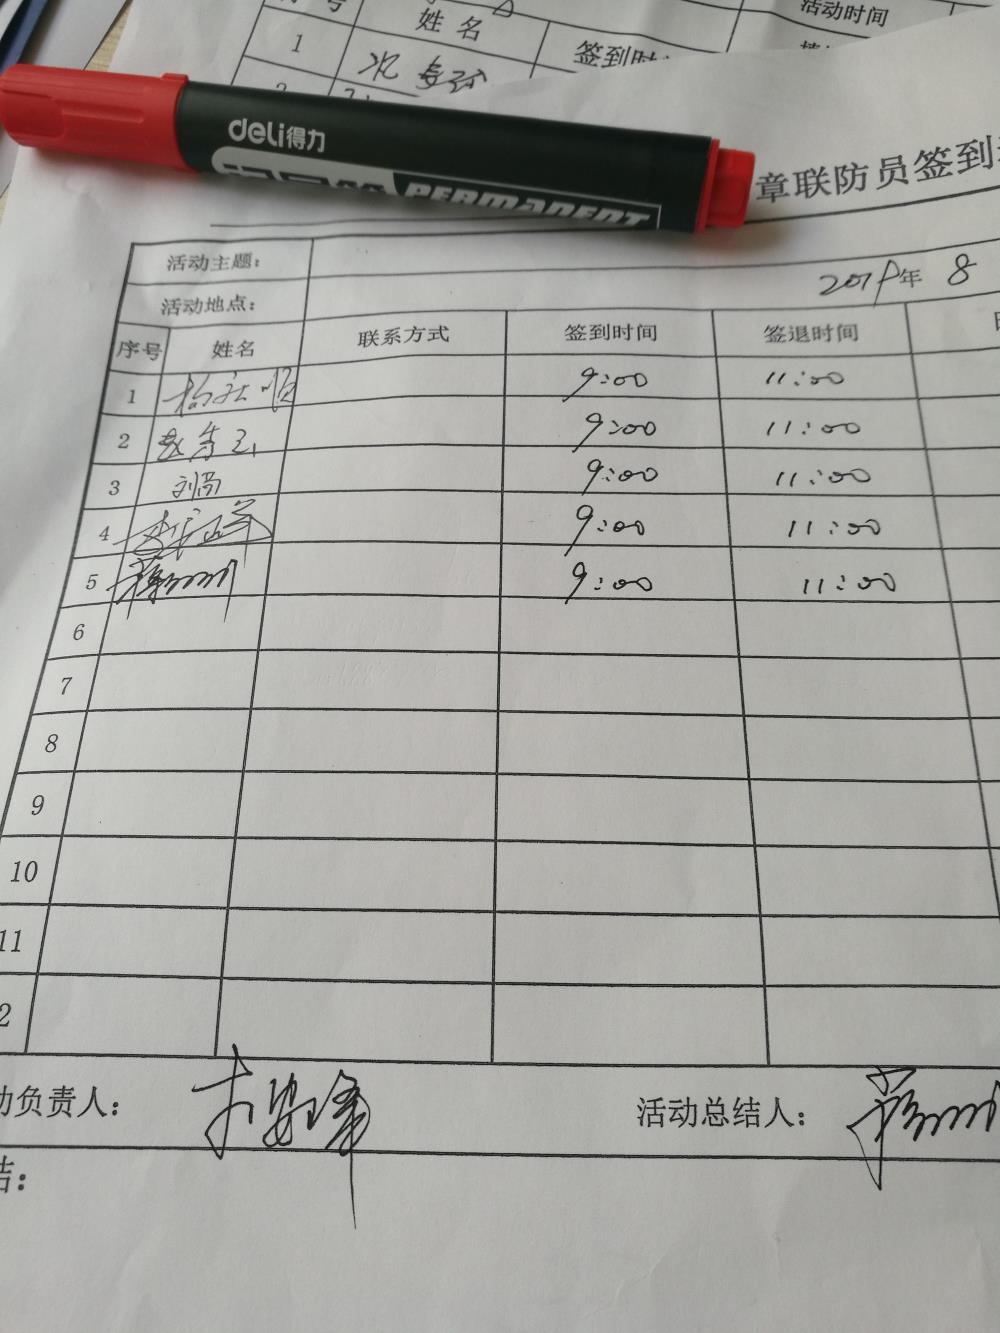 序号 姓名 签到时 活动时间
1
deli得力
PERMANENT
章联防员签到
活动主题：
2019年 8
活动地点：
序号 姓名 联系方式 签到时间 签退时间
1 9:00 11:00
2 9:00 11:00
3 9:00 11:00
4 9:00 11:00
5 9:00 11:00
6
7
8
9
10
11
2
动负责人： 活动总结人：
结：